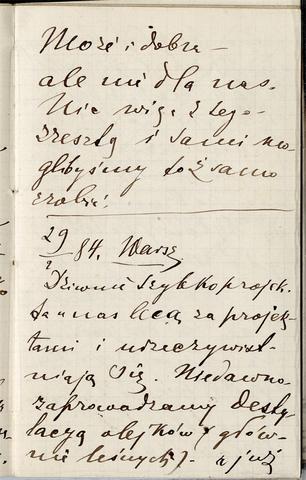 Może i dobre –
ale nie dla nas.
Nic więc z tego –
zresztą i sami mo-
glibyśmy to samo
zrobić!
29
84. Warsz.
Dziwnie szybko projek-
ta u nas lecą za projek-
tami i urzeczywist-
niają się. Niedawno
zaprowadzamy desty-
lacyą olejków (głów-
nie leśnych) – a już